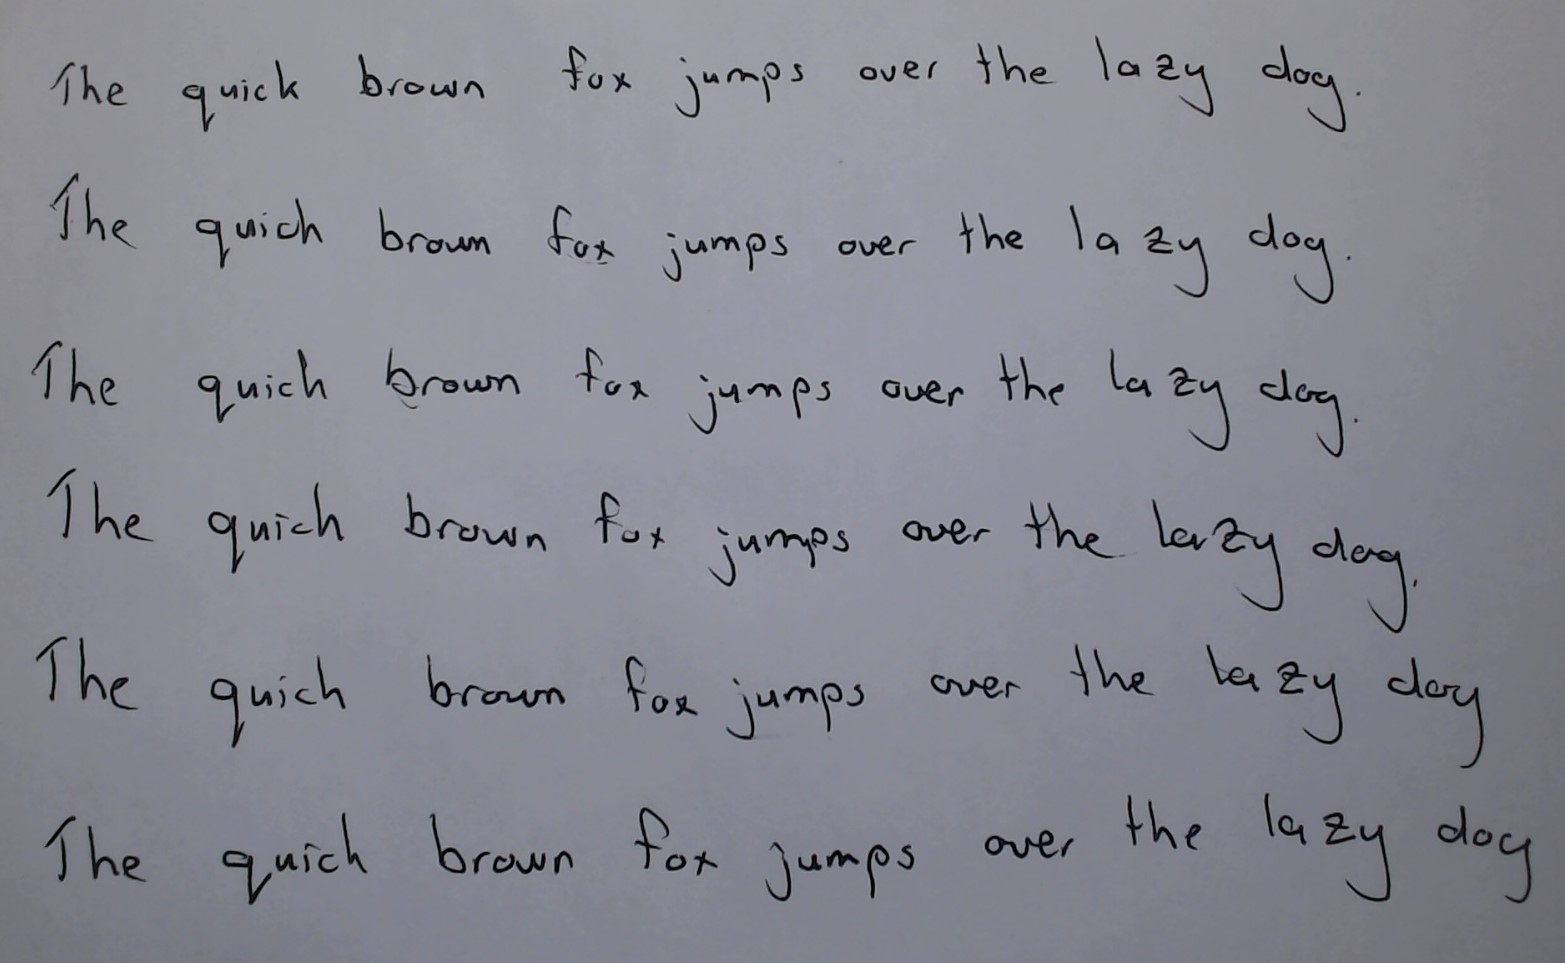 The quick brown fox jumps over the lazy dog.
The quick brown fox jumps over the lazy dog.
The quick brown fox jumps over the lazy dog.
The quick brown fox jumps over the lazy dog.
The quick brown fox jumps over the lazy dog
The quick brown fox jumps over the lazy dog